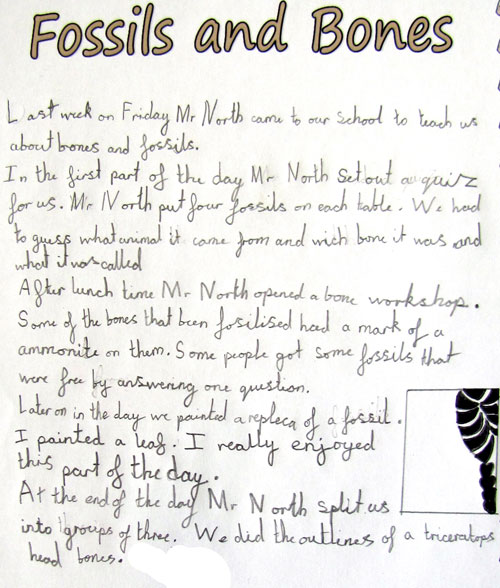 Fossils and Bones
Last week on Friday Mr North came to our School to teach us
about bones and fossils.
In the first part of the day Mr North Set out a quiz
for us. Mr North put four fossils on each table. We had
to guess what animal it came from and wich bone it was and
what it was called
After lunch time Mr North opened a bone workshop.
Some of the bones that been fosilised head a mark of a
ammonite on them. Some people got some fossils that
were free by answering one question.
Later on in the day we painted a repleca of a fossil.
I painted a leaf. I really enjoyed
this part of the day.
At the end of the day Mr North split us
into groups of three. We did the outlines of a triceratops
head bones.